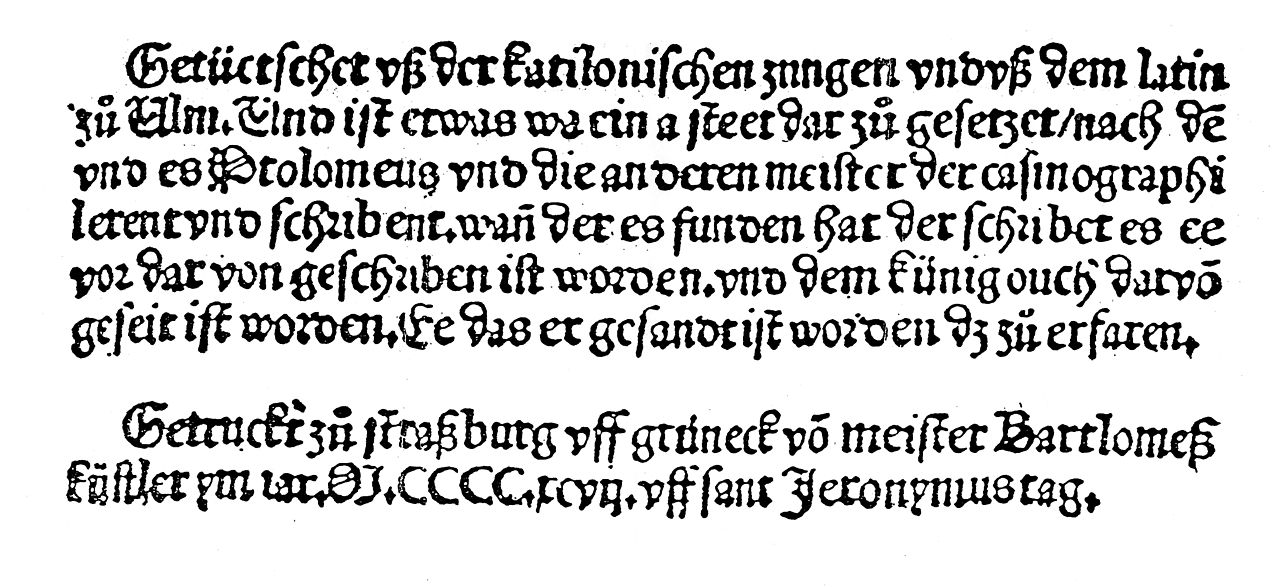 Getüctschet vß der katilonischen zungen vnd vß dem latin
zů Ulm. Und ist etwas wa ein a steet dar zů gesetzet/nach dē
vnd es Ptolomeus vnd die anderen meister der casmographi
lerent vnd schribent. wañ der es funden hat der schribet es ee
vor dar von geschriben ist worden. vnd dem künig ouch darvō
geseit ist worden. Ee das er gesandt ist worden dz zů erfaren.
Getruckt zů straßburg vff grüneck vō meister Bartlomeß
küstler ym iar. M. CCCC. xcvij. vff sant Jeronymus tag.